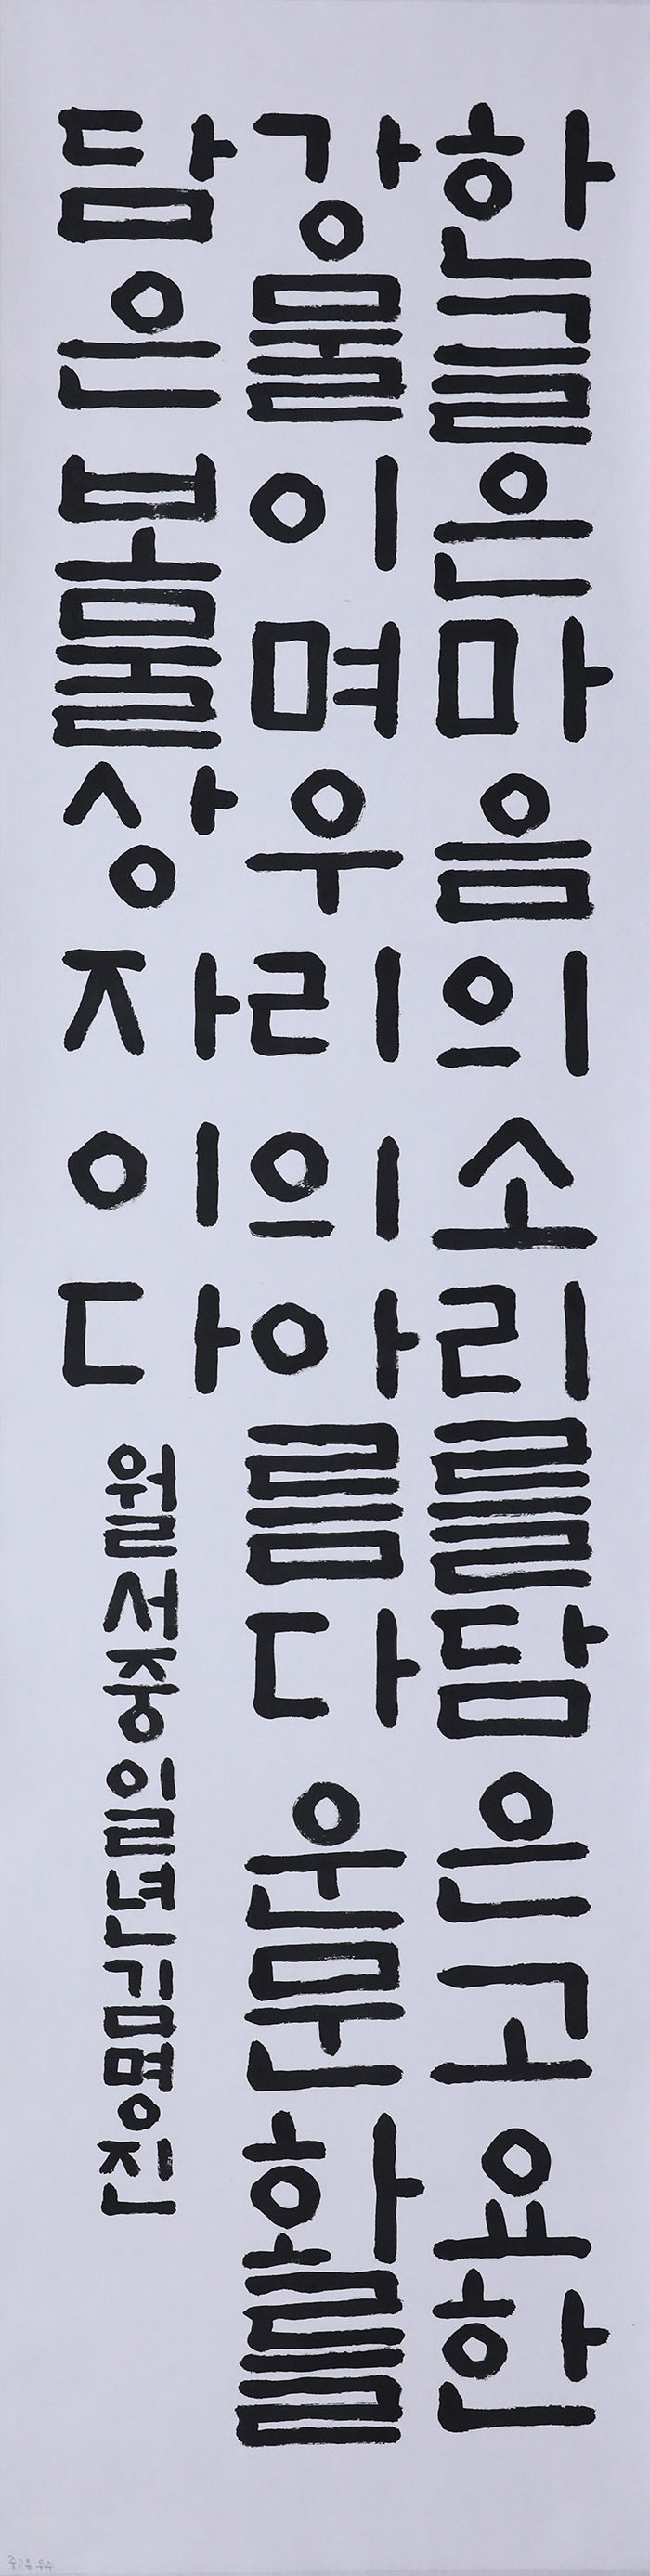 한글은마음의소리를담은고요한
강물이며우리의아름다운문화를
담은보물상자이다
월서중일년김명진